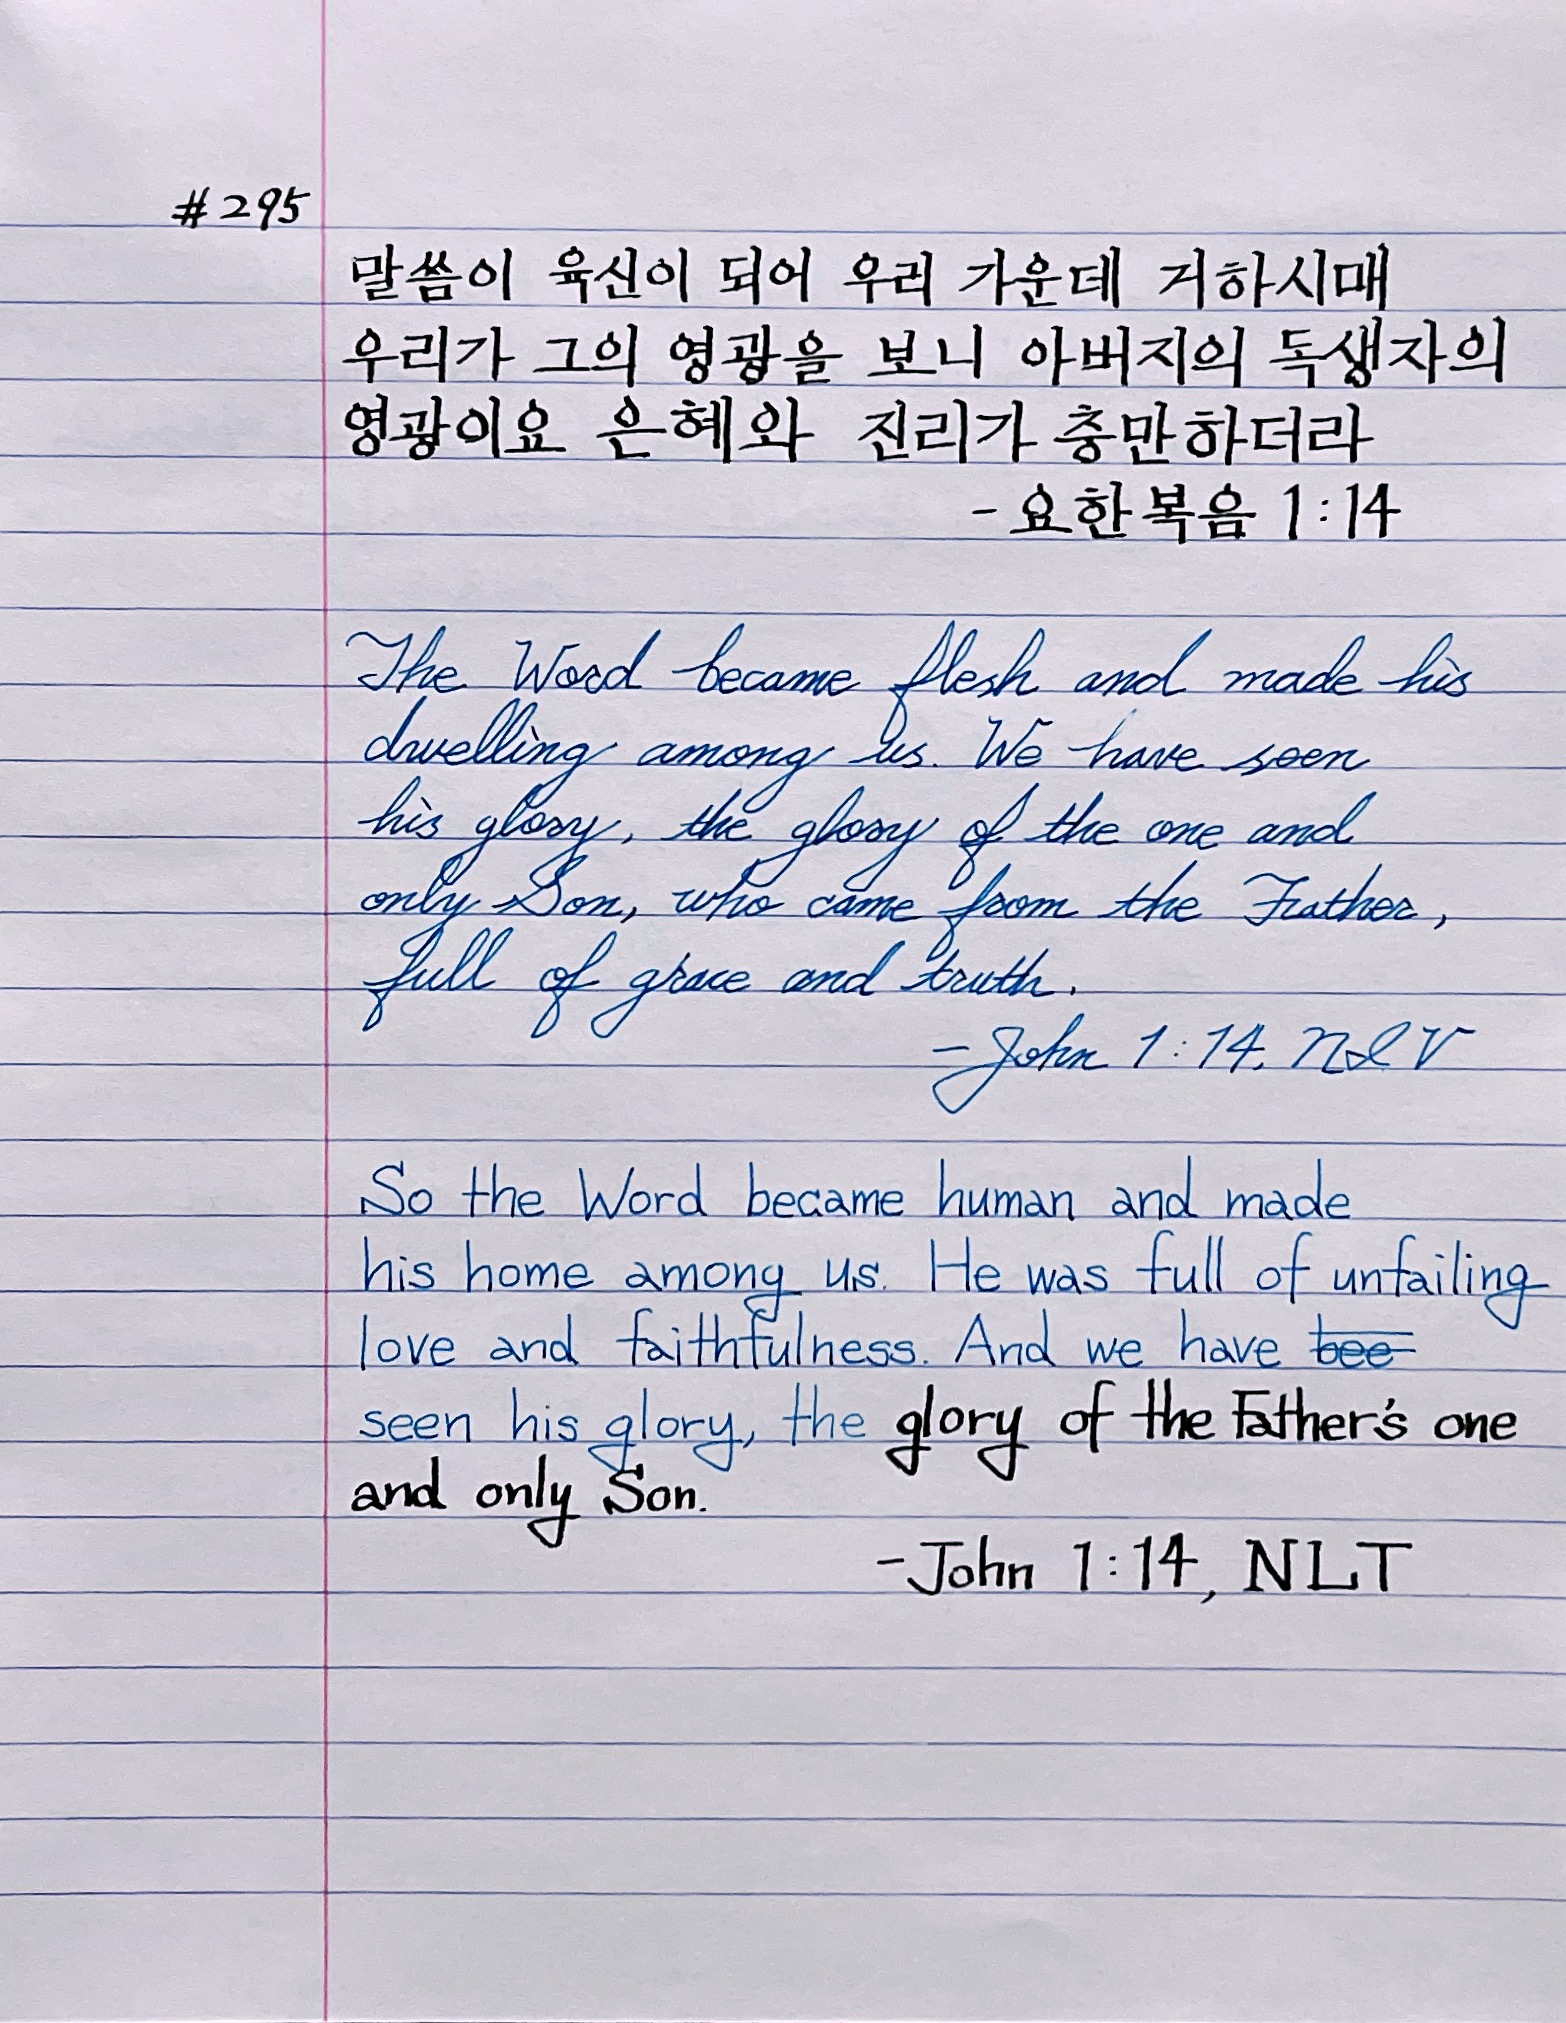 #295
말씀이 육신이 되어 우리 가운데 거하시매
우리가 그의 영광을 보니 아버지의 독생자의
영광이요 은혜와 진리가 충만하더라
- 요한복음 1:14
The Word became flesh and made his
dwelling among us. We have seen
his glory, the glory of the one and
only Son, who came from the Father,
full of grace and truth.
- John 1:14, NIV
So the Word became human and made
his home among us. He was full of unfailing
love and faithfulness. And we have bee
seen his glory, the glory of the Father's one
and only Son.
- John 1:14, NLT